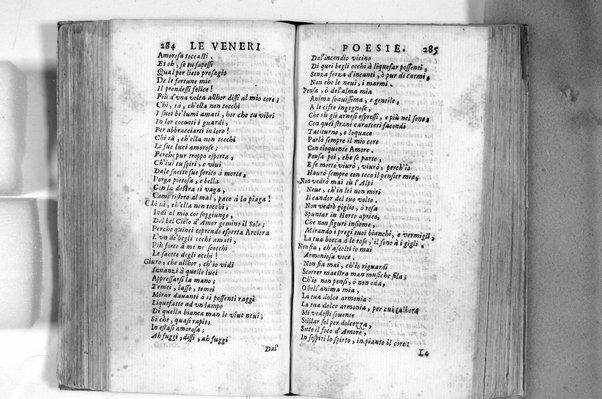 284 LE VENERI
Amorosa toccasti.
Et oh, se tu sapessi
Qual per lieto presagio
De le fortune mie
Il prendessi felice!
Più d'una volta allhor dissi al mio core;
Chi sà, ch'ella non tocchi
I suoi be' lumi amati, hor che tu vibri
In lor cocenti i guardi,
Per abbracciarti in loro!
Chi sà, ch'ella non tocchi
Le sue luci amorose;
Perche pur troppo esperta,
Ch'iui tu spiri, e viui
Dale saette sue ferito à morte,
Porga pietosa, e bella
Con la destra sì vaga,
Come ristoro al mal, pace à la piaga!
Chi sà, ch'ella non tocchi
Indi al mio cor soggiungo,
Del bel Cielo d'Amor gemino il Sole;
Perche quinci e quindi esperta Arciera
L'un de' begli occhi amati,
Più forte à me ne scocchi
Le saette degli occhi!
Giuro, che allhor, ch'io vidi
Innanzi à quelle luci
Appressarsi la mano;
Temei, lasso, temei
Mirar dauanti à sì possenti raggi
Liquefatte ad un lampo
Di quella bianca man le viue neui;
Sì che, quasi rapito
In estasi amorosa;
Ah fuggi; dissi, ah fuggi
Dal'
POESIE. 285
Dal'incendio vicino
Di quei begli occhi à liquefar possenti,
Senza forza d'incanti, ò pur di carmi,
Non che le neui, i marmi.
Pensa, ò del'alma mia
Anima soauissima, e gentile,
A le cifre ingegnose,
Che sù gli arnesi espressi, e più nel seno,
Con quei strani caratteri facondi
Taciturno, e loquace
Parlò sempre il mio core
Con eloquente Amore.
Pensa poi, che se parto,
E se morto viurò, viurò, perch'io
Haurò sempre con teco il pensier mio.
Non vedrò mai sù l'Alpi
Neue, ch'in lei non miri
Il candor del tuo volto.
Non vedrò giglio, ò rosa
Spuntar in Horto aprico,
Che non figuri insieme,
Mirando i pregi suoi bianchi, e vermigli,
La tua bocca à le rose, 'l seno à i gigli.
Non fia, ch'ascolti io mai
Armoniosa voce.
Non fia mai, ch'io riguardi
Scorrer maestra man musiche fila;
Ch'io non pensi, ò non oda,
O bell'anima mia,
La tua dolce armonia:
La tua dolce armonia, per cui talhora
Mi vedesti souente
Stillar sol per dolcezza,
Sotto il foco d'Amore,
In sospiri lo spirto, in pianto il core:
La